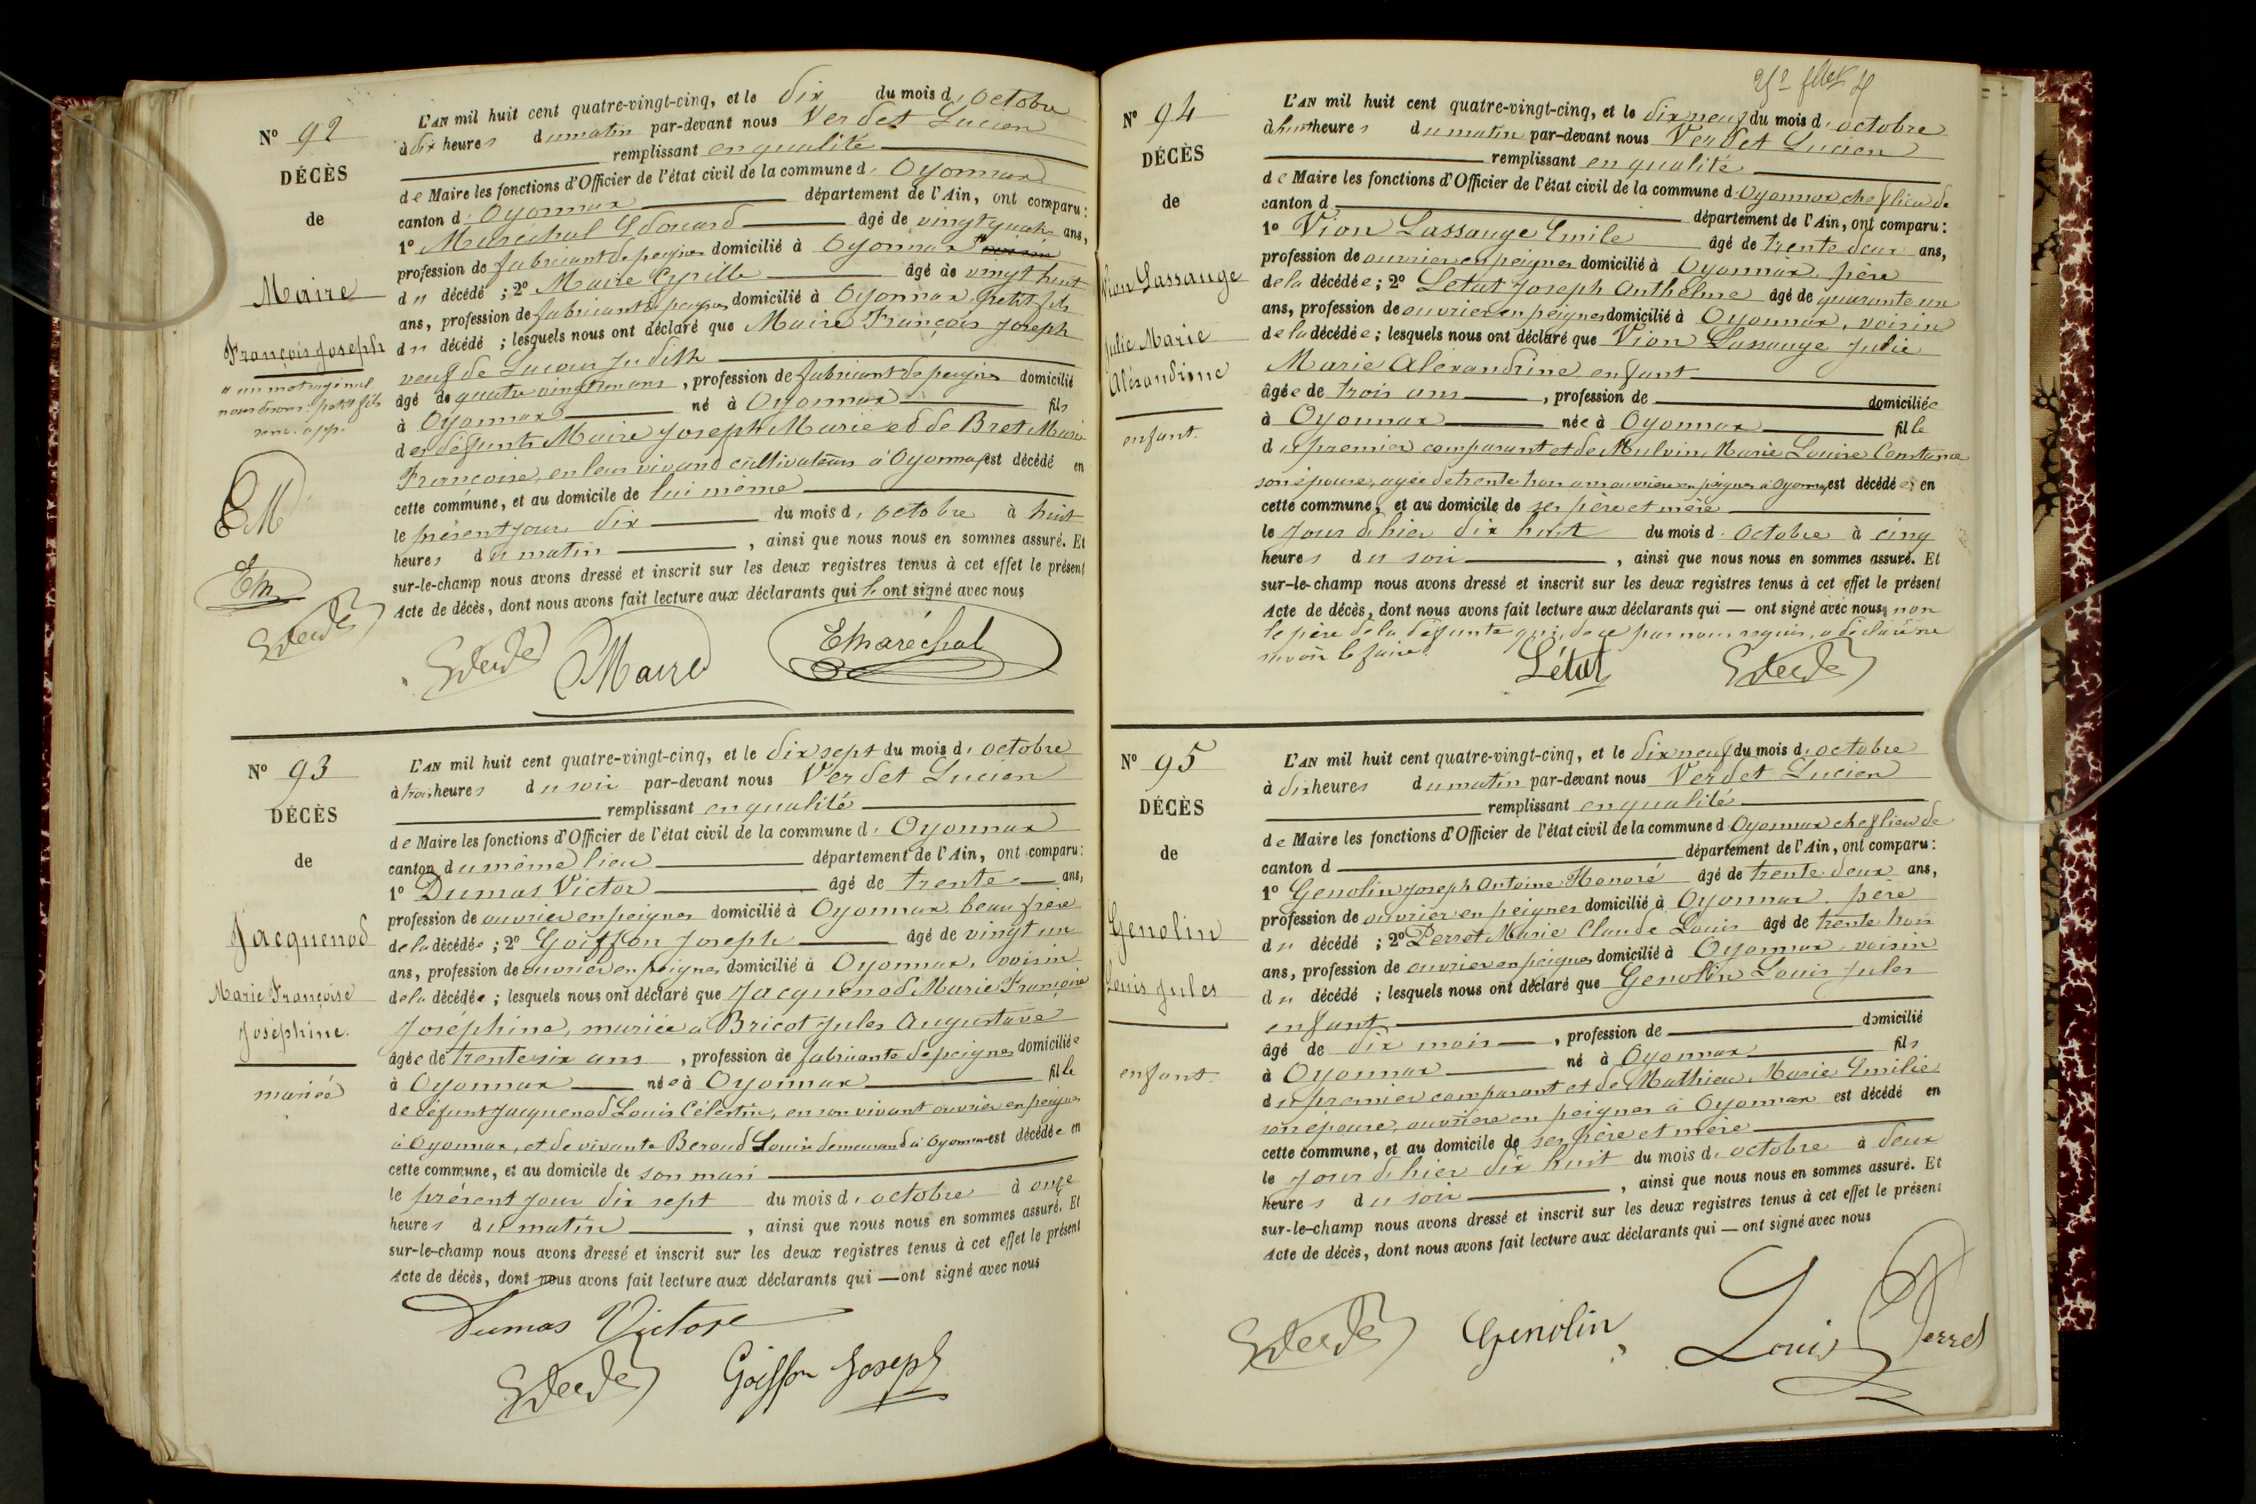 N° 92
DÉCÈS
de
Maire
François Joseph
" un mot rayé nul
nous disons: petit fils
EM
Em
L'AN mil huit cent quatre-vingt-cinq, et le dix du mois d'octobre
à dix heures du matin par-devant nous Verdet Lucien
remplissant en qualité
de Maire les fonctions d'Officier de l'état civil de la commune d'Oyonnax
canton d'Oyonnax département de l'Ain, ont comparu:
1° Maréchal Edouard âgé de vingt quatre ans,
profession de fabricant de peignes domicilié à Oyonnax
du décédé ; 2° Maire Cyrille âgé de vingt huit
ans, profession de fabricant de peignes domicilié à Oyonnax, petit fils
du décédé ; lesquels nous ont déclaré que Maire François Joseph
veuf de Judith
âgé de quatre vingt ans, profession de fabricant de peignes domicilié
à Oyonnax né à Oyonnax fils
des défunts Maire Joseph Marie et de Bret Marie
Françoise, en leur vivant cultivateurs à Oyonnax, est décédé en
cette commune, et au domicile de lui même
le présent jour dix du mois d'octobre à huit
heures du matin, ainsi que nous nous en sommes assuré. Et
sur-le-champ nous avons dressé et inscrit sur les deux registres tenus à cet effet le présent
Acte de décès, dont nous avons fait lecture aux déclarants qui l'ont signé avec nous
Maire
E Maréchal
N° 93
DÉCÈS
de
Jacquenod
Marie Françoise
Joséphine.
mariée
L'AN mil huit cent quatre-vingt-cinq, et le dix sept du mois d'octobre
à trois heures du soir par-devant nous Verdet Lucien
remplissant en qualité
de Maire les fonctions d'Officier de l'état civil de la commune d'Oyonnax
canton du même lieu département de l'Ain, ont comparu:
1° Dumas Victor âgé de trente ans,
profession de ouvrier en peignes domicilié à Oyonnax, beau frère
de la décédée ; 2° Goiffon Joseph âgé de vingt un
ans, profession de ouvrier en peignes domicilié à Oyonnax, voisin
de la décédée ; lesquels nous ont déclaré que Jacquenod Marie Françoise
Joséphine, mariée à Bricot Jules Augustave
âgée de trente six ans, profession de fabricante de peignes domiciliée
à Oyonnax née à Oyonnax fille
de défunt Jacquenod Louis Célestin, en son vivant ouvrier en peignes
à Oyonnax, et de vivante Beroud Louise demeurand à Oyonnax est décédée en
cette commune, et au domicile de son mari
le présent jour dix sept du mois d'octobre à onze
heures du matin, ainsi que nous nous en sommes assuré. Et
sur-le-champ nous avons dressé et inscrit sur les deux registres tenus à cet effet le présent
Acte de décès, dont nous avons fait lecture aux déclarants qui — ont signé avec nous
Dumas Victore
Goiffon Joseph
N° 94
DÉCÈS
de
Vion Lassauge
Julie Marie
Alexandrine
enfant.
L'AN mil huit cent quatre-vingt-cinq, et le dix neuf du mois d'octobre
à huit heures du matin par-devant nous Verdet Lucien
remplissant en qualité
de Maire les fonctions d'Officier de l'état civil de la commune d'Oyonnax chef lieu de
canton d département de l'Ain, ont comparu:
1° Vion Lassauge Emile âgé de trente deux ans,
profession de ouvrier en peignes domicilié à Oyonnax, père
de la décédée ; 2° Letat Joseph Anthelme âgé de quarante un
ans, profession de ouvrier en peignes domicilié à Oyonnax, voisin
de la décédée ; lesquels nous ont déclaré que Vion Lassauge Julie
Marie Alexandrine enfant
âgée de trois ans, profession de domiciliée
à Oyonnax née à Oyonnax fille
du premier comparant et de Mulvin Marie Louise Constance
son épouse, agée de trente trois ans ouvrière en peignes à Oyonnax, est décédée en
cette commune, et au domicile de ses père et mère
le jour d'hier dix huit du mois d'octobre à cinq
heures du soir, ainsi que nous nous en sommes assuré. Et
sur-le-champ nous avons dressé et inscrit sur les deux registres tenus à cet effet le présent
Acte de décès, dont nous avons fait lecture aux déclarants qui — ont signé avec nous, non
le père de la défunte qui, de ce par nous requis, a déclaré ne
savoir le faire.
Létat
N° 95
DÉCÈS
de
Genolin
Louis Jules
enfant.
L'AN mil huit cent quatre-vingt-cinq, et le dix neuf du mois d'octobre
à dix heures du matin par-devant nous Verdet Lucien
remplissant en qualité
de Maire les fonctions d'Officier de l'état civil de la commune d'Oyonnax chef lieu de
canton d département de l'Ain, ont comparu:
1° Genolin Joseph Antoine Honoré âgé de trente deux ans,
profession de ouvrier en peignes domicilié à Oyonnax, père
du décédé ; 2° Perret Marie Claude Louis âgé de trente trois
ans, profession de ouvrier en peignes domicilié à Oyonnax, voisin
du décédé ; lesquels nous ont déclaré que Genolin Louis Jules
enfant
âgé de dix mois, profession de domicilié
à Oyonnax né à Oyonnax fils
du premier comparant et de Mathieu Marie Emilie
son épouse, ouvrière en peignes à Oyonnax est décédé en
cette commune, et au domicile de ses père et mère
le jour d'hier dix huit du mois d'octobre à deux
heures du soir, ainsi que nous nous en sommes assuré. Et
sur-le-champ nous avons dressé et inscrit sur les deux registres tenus à cet effet le présent
Acte de décès, dont nous avons fait lecture aux déclarants qui — ont signé avec nous
Genolin
Louis Perret